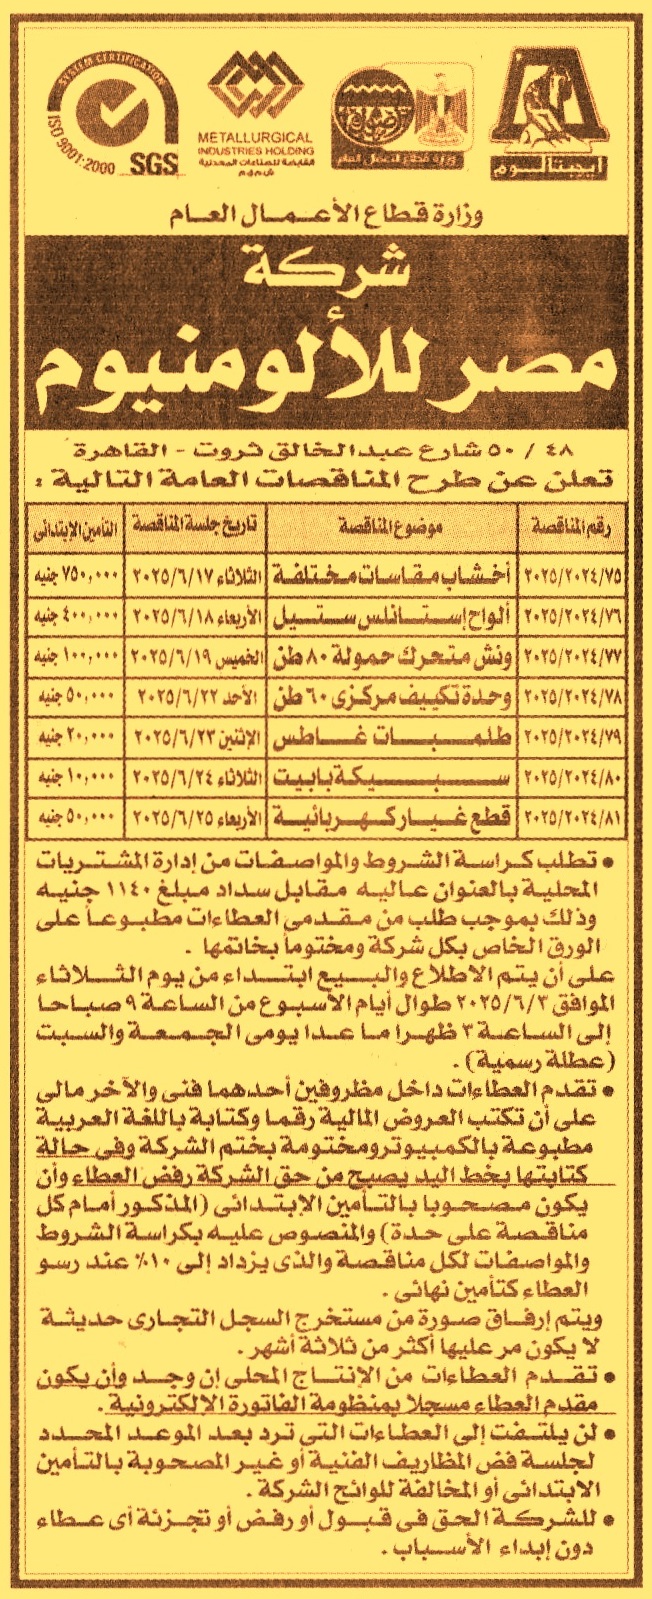 SYSTEM CERTIFICATION
ISO 9001:2000
SGS
METALLURGICAL
INDUSTRIES HOLDING
القابضة للصناعات المعدنية
ش.م.م
وزارة قطاع الأعمال العام
إيجيتالوم
وزارة قطاع الأعمال العام
شركة
مصر للألومنيوم
٤٨ / ٥٠ شارع عبد الخالق ثروت - القاهرة
تعلن عن طرح المناقصات العامة التالية :
رقم المناقصة موضوع المناقصة تاريخ جلسة المناقصة التأمين الإبتدائى
٢٠٢٥/٢٠٢٤/٧٥ أخشاب مقاسات مختلفة الثلاثاء ٢٠٢٥/٦/١٧ ٧٥٠,٠٠٠ جنيه
٢٠٢٥/٢٠٢٤/٧٦ ألواح إستانلس ستيل الأربعاء ٢٠٢٥/٦/١٨ ٤٠٠,٠٠٠ جنيه
٢٠٢٥/٢٠٢٤/٧٧ ونش متحرك حمولة ٨٠ طن الخميس ٢٠٢٥/٦/١٩ ١٠٠,٠٠٠ جنيه
٢٠٢٥/٢٠٢٤/٧٨ وحدة تكييف مركزى ٦٠ طن الأحد ٢٠٢٥/٦/٢٢ ٥٠,٠٠٠ جنيه
٢٠٢٥/٢٠٢٤/٧٩ طلمبات غاطس الإثنين ٢٠٢٥/٦/٢٣ ٢٠,٠٠٠ جنيه
٢٠٢٥/٢٠٢٤/٨٠ سبيكة بابيت الثلاثاء ٢٠٢٥/٦/٢٤ ١٠,٠٠٠ جنيه
٢٠٢٥/٢٠٢٤/٨١ قطع غيار كهربائية الأربعاء ٢٠٢٥/٦/٢٥ ٥٠,٠٠٠ جنيه
• تطلب كراسة الشروط والمواصفات من إدارة المشتريات
المحلية بالعنوان عاليه مقابل سداد مبلغ ١١٤٠ جنيه
وذلك بموجب طلب من مقدمى العطاءات مطبوعاً على
الورق الخاص بكل شركة ومختوماً بخاتمها .
على أن يتم الاطلاع والبيع ابتداء من يوم الثلاثاء
الموافق ٢٠٢٥/٦/٣ طوال أيام الأسبوع من الساعة ٩ صباحا
إلى الساعة ٣ ظهرا ما عدا يومى الجمعة والسبت
(عطلة رسمية) .
• تقدم العطاءات داخل مظروفين أحدهما فنى والآخر مالى
على أن تكتب العروض المالية رقما وكتابة باللغة العربية
مطبوعة بالكمبيوتر ومختومة بختم الشركة وفى حالة
كتابتها بخط اليد يصبح من حق الشركة رفض العطاء وأن
يكون مصحوبا بالتأمين الإبتدائى (المذكور أمام كل
مناقصة على حدة) والمنصوص عليه بكراسة الشروط
والمواصفات لكل مناقصة والذى يزداد إلى ١٠٪ عند رسو
العطاء كتأمين نهائى .
ويتم إرفاق صورة من مستخرج السجل التجارى حديثة
لا يكون مر عليها أكثر من ثلاثة أشهر .
• تقدم العطاءات من الإنتاج المحلى إن وجد وأن يكون
مقدم العطاء مسجلا بمنظومة الفاتورة الإلكترونية .
• لن يلتفت إلى العطاءات التى ترد بعد الموعد المحدد
لجلسة فض المظاريف الفنية أو غير المصحوبة بالتأمين
الابتدائى أو المخالفة للوائح الشركة .
• للشركة الحق فى قبول أو رفض أو تجزئة أى عطاء
دون إبداء الأسباب .